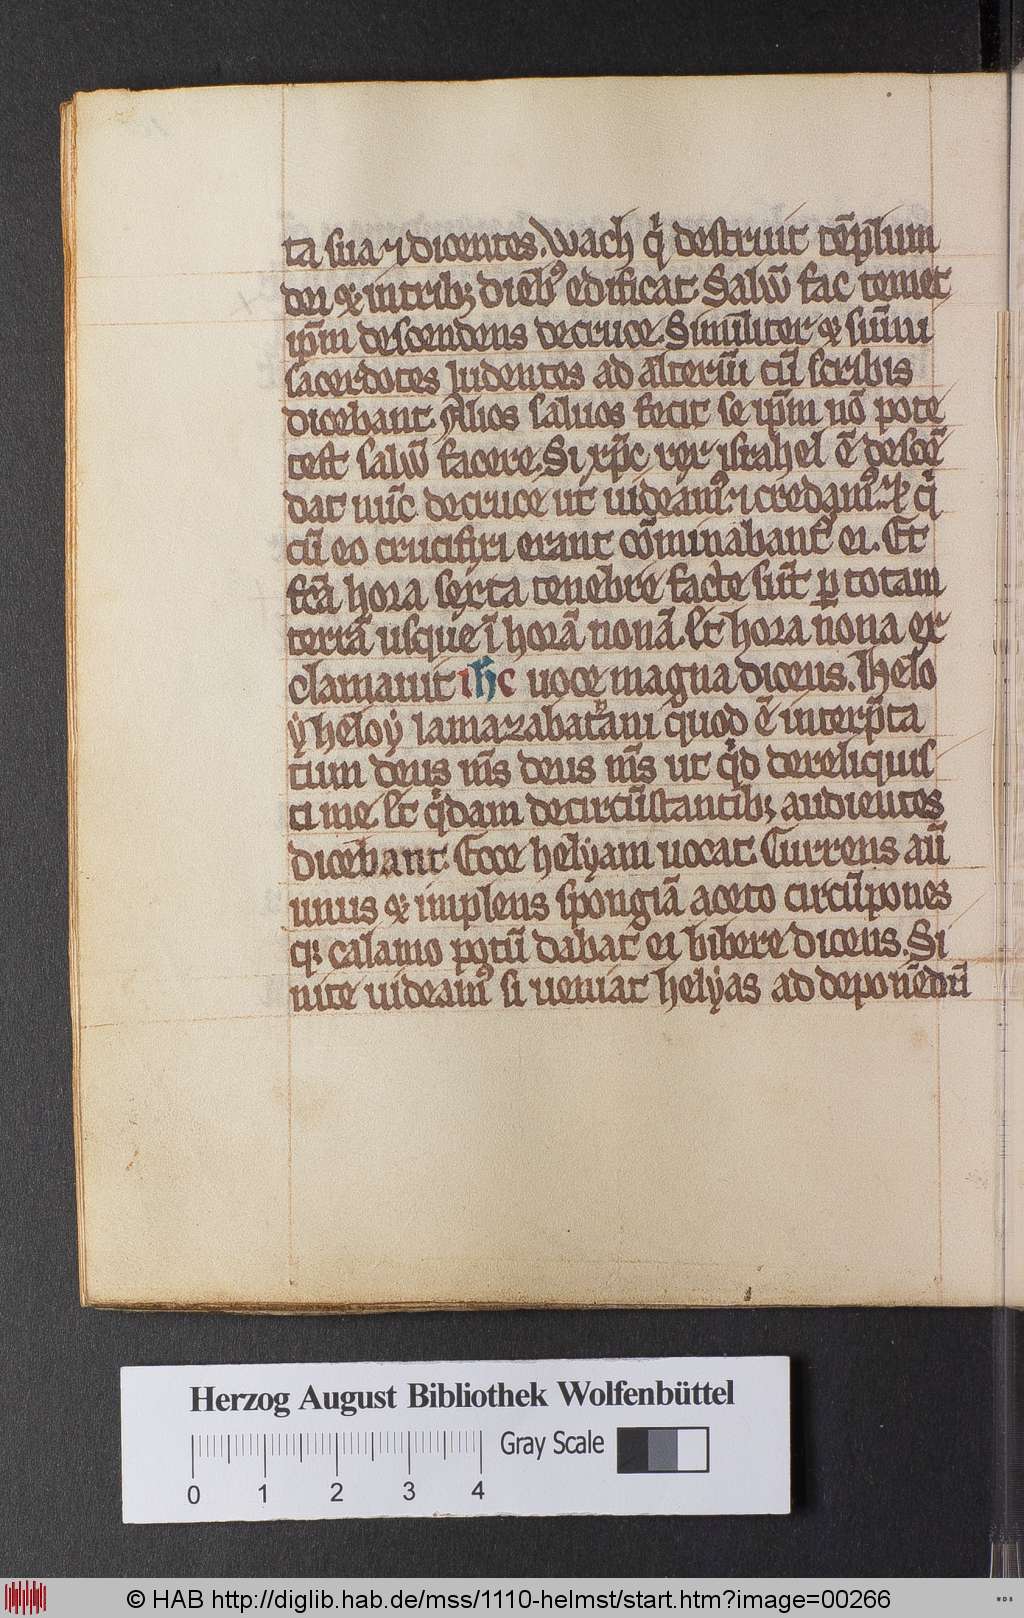 ta sua ⁊ dicentes. Wach q̇ destruit te̅plum
dei ⁊ in tribꝫ dieb᷒ edificat. Salu̅ fac temet
ip̅m descendens de cruce. Similiter ⁊ su̅mi
sacerdotes ludentes ad alteru̅ cu̅ scribis
dicebant. Alios saluos fecit se ip̅m no̅ pote
test salu̅ facere. Si xp̅c rex israhel e̅ desce̅
dat nu̅c de cruce ut uideam᷒ ⁊ credam᷒. Et q̇
cu̅ eo crucifixi erant co̅minabant᷑ ei. Et
fc̅a hora sexta tenebre facte su̅t ꝑ totam
terra̅ usque i̅ hora̅ nona̅. Et hora nona ex
clamauit ih̅c uoce magna dicens. Helo
ÿ heloÿ lamazabatani quod e̅ interp̅ta
tum deus m̅s deus m̅s ut q̇d dereliquis
ti me. Et q̇dam de circu̅stantibꝫ audientes
dicebant. Ecce helÿam uocat. Currens au̅
unus ⁊ implens spongia̅ aceto circu̅pones
qꝫ calamo potu̅ dabat ei bibere dicens. Si
nite uideam᷒ si ueniat helÿas ad depone̅du̅
Herzog August Bibliothek Wolfenbüttel
Gray Scale
0 1 2 3 4
© HAB http://diglib.hab.de/mss/1110-helmst/start.htm?image=00266